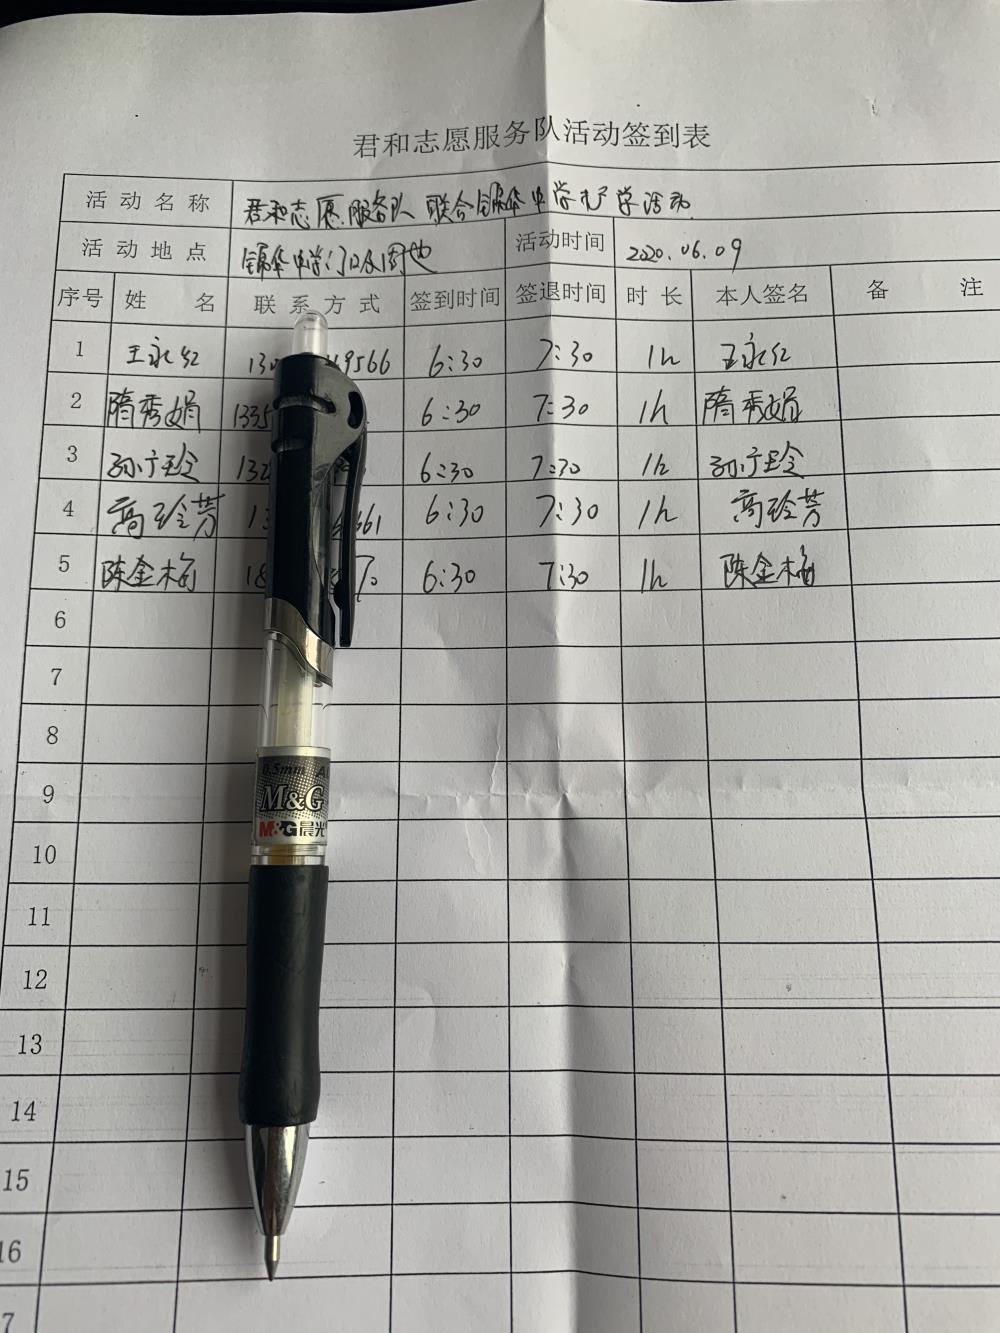 君和志愿服务队活动签到表
活动名称 君和志愿服务队联合锦华中学护学活动
活动地点 锦华中学门口及周边 活动时间 2020.06.09
序号 姓名 联系方式 签到时间 签退时间 时长 本人签名 备注
1 王永红 9566 6:30 7:30 1h 王永红
2 隋秀娟 1335 6:30 7:30 1h 隋秀娟
3 孙广珍 132 6:30 7:30 1h 孙广珍
4 高珍芳 13 661 6:30 7:30 1h 高珍芳
5 陈金梅 18 6:30 7:30 1h 陈金梅
6
7
8
9
10
11
12
13
14
15
16
7
0.5mm
M&G
M&G晨光